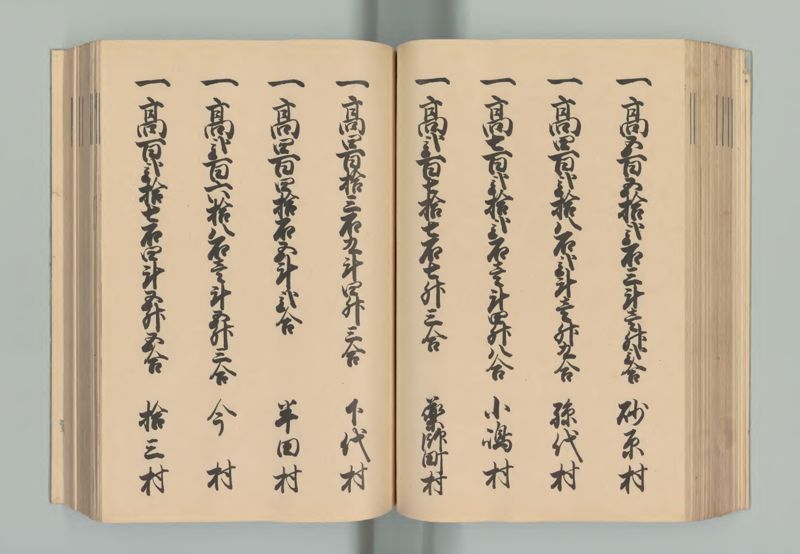 一高五百五拾弐石三斗壱升弐合 砂原村
一高四百弐拾八石弐斗壱升九合 弥代村
一高七百弐拾弐石壱斗四升八合 小嶋村
一高弐百七拾七石七升三合 薬師町村
一高四百拾三石九斗四升三合 下代村
一高四百四拾石五斗弐合 半田村
一高弐百六拾八石壱斗五升三合 今村
一高百弐拾七石四斗五升五合 拾三村